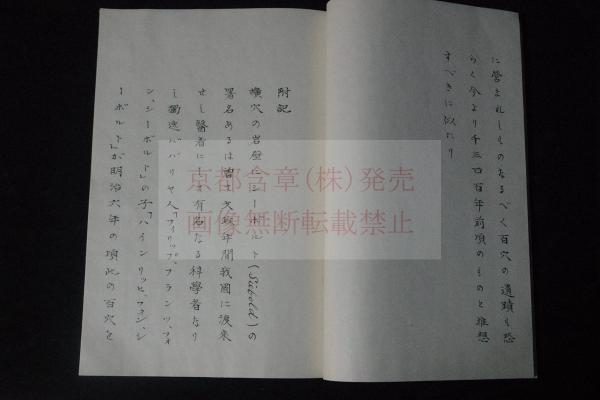 に営まれしものなるべく百穴の遺蹟も恐
らく今より千三四百年前頃のものと推想
すべきに似たり
附記
横穴の岩壁にシーボルト(Siebold)の
署名あるは曽て文政年間我國に渡来
せし醫者にして有名なる科學者なり
し獨逸ババリヤ人「フィリップ、フランツ、フォ
ン、シーボルト」の子「ハインリッヒ、フォン、シ
ーボルト」が明治六年の頃此の百穴を
京都含章(株)発売
画像無断転載禁止